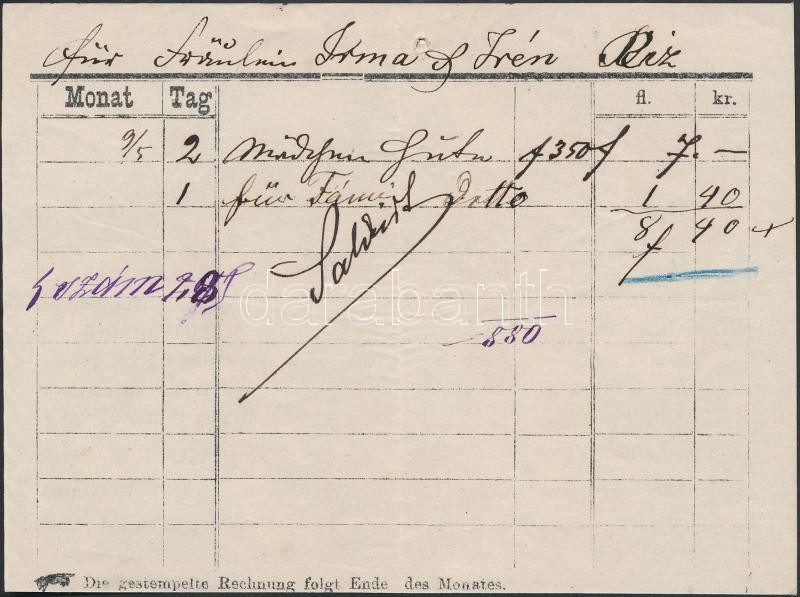 für Fräulein Irma & Irén Riz
Monat Tag fl. kr.
9/5 2 Mädchen Hüte f 350 f 7. —
1 für Fanni detto 1 40
f 8 40
Saldirt
szám
darabanth
880
Die gestempelte Rechnung folgt Ende des Monates.